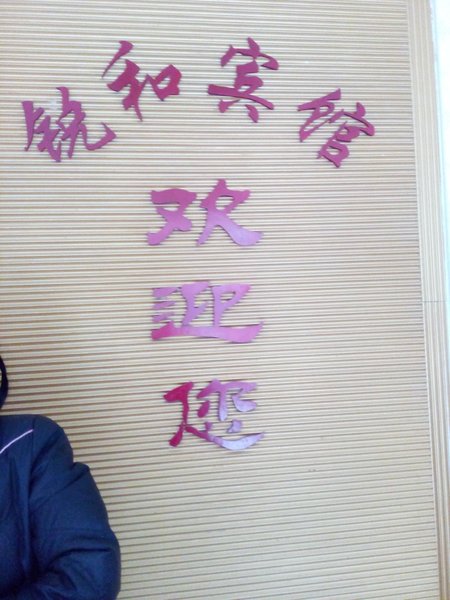 锐和宾馆
欢
迎
您